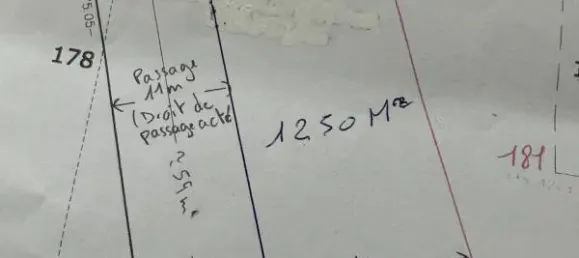 5.05-
178
Passage
11m
(Droit de
passage acté
1250 M²
259 m.
181